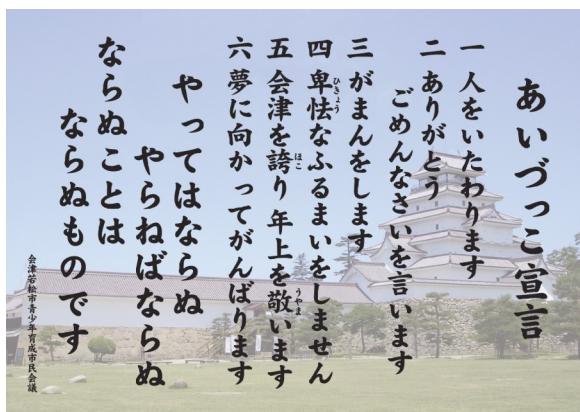 あいづっこ宣言
一 人をいたわります
二 ありがとう
ごめんなさいを言います
三 がまんをします
四 卑怯なふるまいをしません
五 会津を誇り 年上を敬います
六 夢に向かってがんばります
やってはならぬ
やらねばならぬ
ならぬことは
ならぬものです
会津若松市青少年育成市民会議